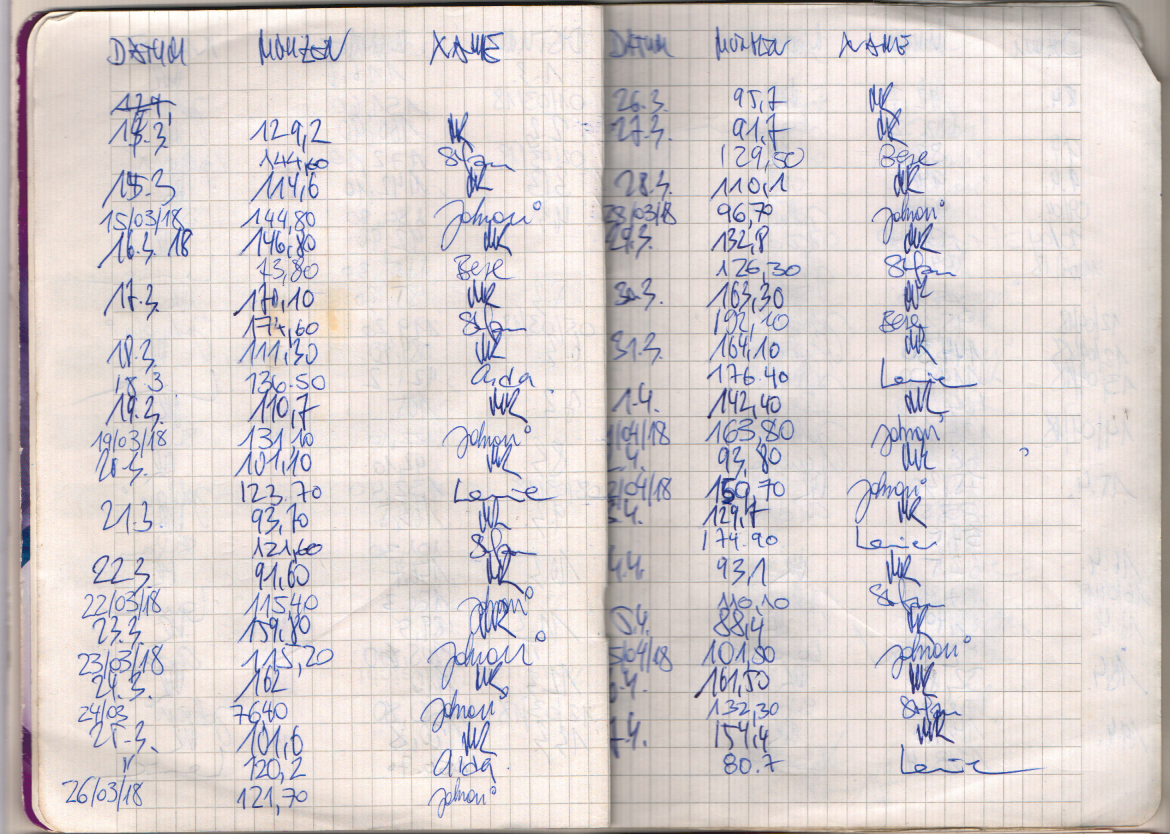 DATUM MÜNZEN NAME
14.3. 129,2 MR
144,60 Stefan
15.3 114,6 MR
15/03/18 144,80 Johnori
16.3.18 146,80 MR
73,80 Bese
17.3. 170,10 MR
174,60 Stefan
18.3. 111,30 MR
18.3 136.50 Aida
19.3. 110,7 MR
19/03/18 131,10 Johnori
20.3. 101,10 MR
123.70
21.3. 93,70 MR
121,60 Stefan
22.3. 91,60 MR
22/03/18 115,40 Johnori
23.3. 159,80 MR
23/03/18 115,20 Johnori
24.3. 162 MR
24/03 7640 Johnori
25.3. 101,6 MR
120,2 Aida
26/03/18 121,70 Johnori
DATUM MÜNZEN NAME
26.3. 95,7 MR
27.3. 91,7 MR
129,50 Bese
28.3. 110,1 MR
28/03/18 96,70 Johnori
29.3. 132,8 MR
126,30 Stefan
30.3. 163,30 MR
192,10 Bese
31.3. 164,10 MR
176.40
1.4. 142,40 MR
/04/18 163,80 Johnori
.4. 93,80 MR
2/04/18 150,70 Johnori
.4. 129,7 MR
174.90
4.4. 93,1 MR
110,10 Stefan
5.4. 88,4 MR
5/04/18 101,50 Johnori
.4. 161,50 MR
132,30 Stefan
7.4. 154,4 MR
80.7